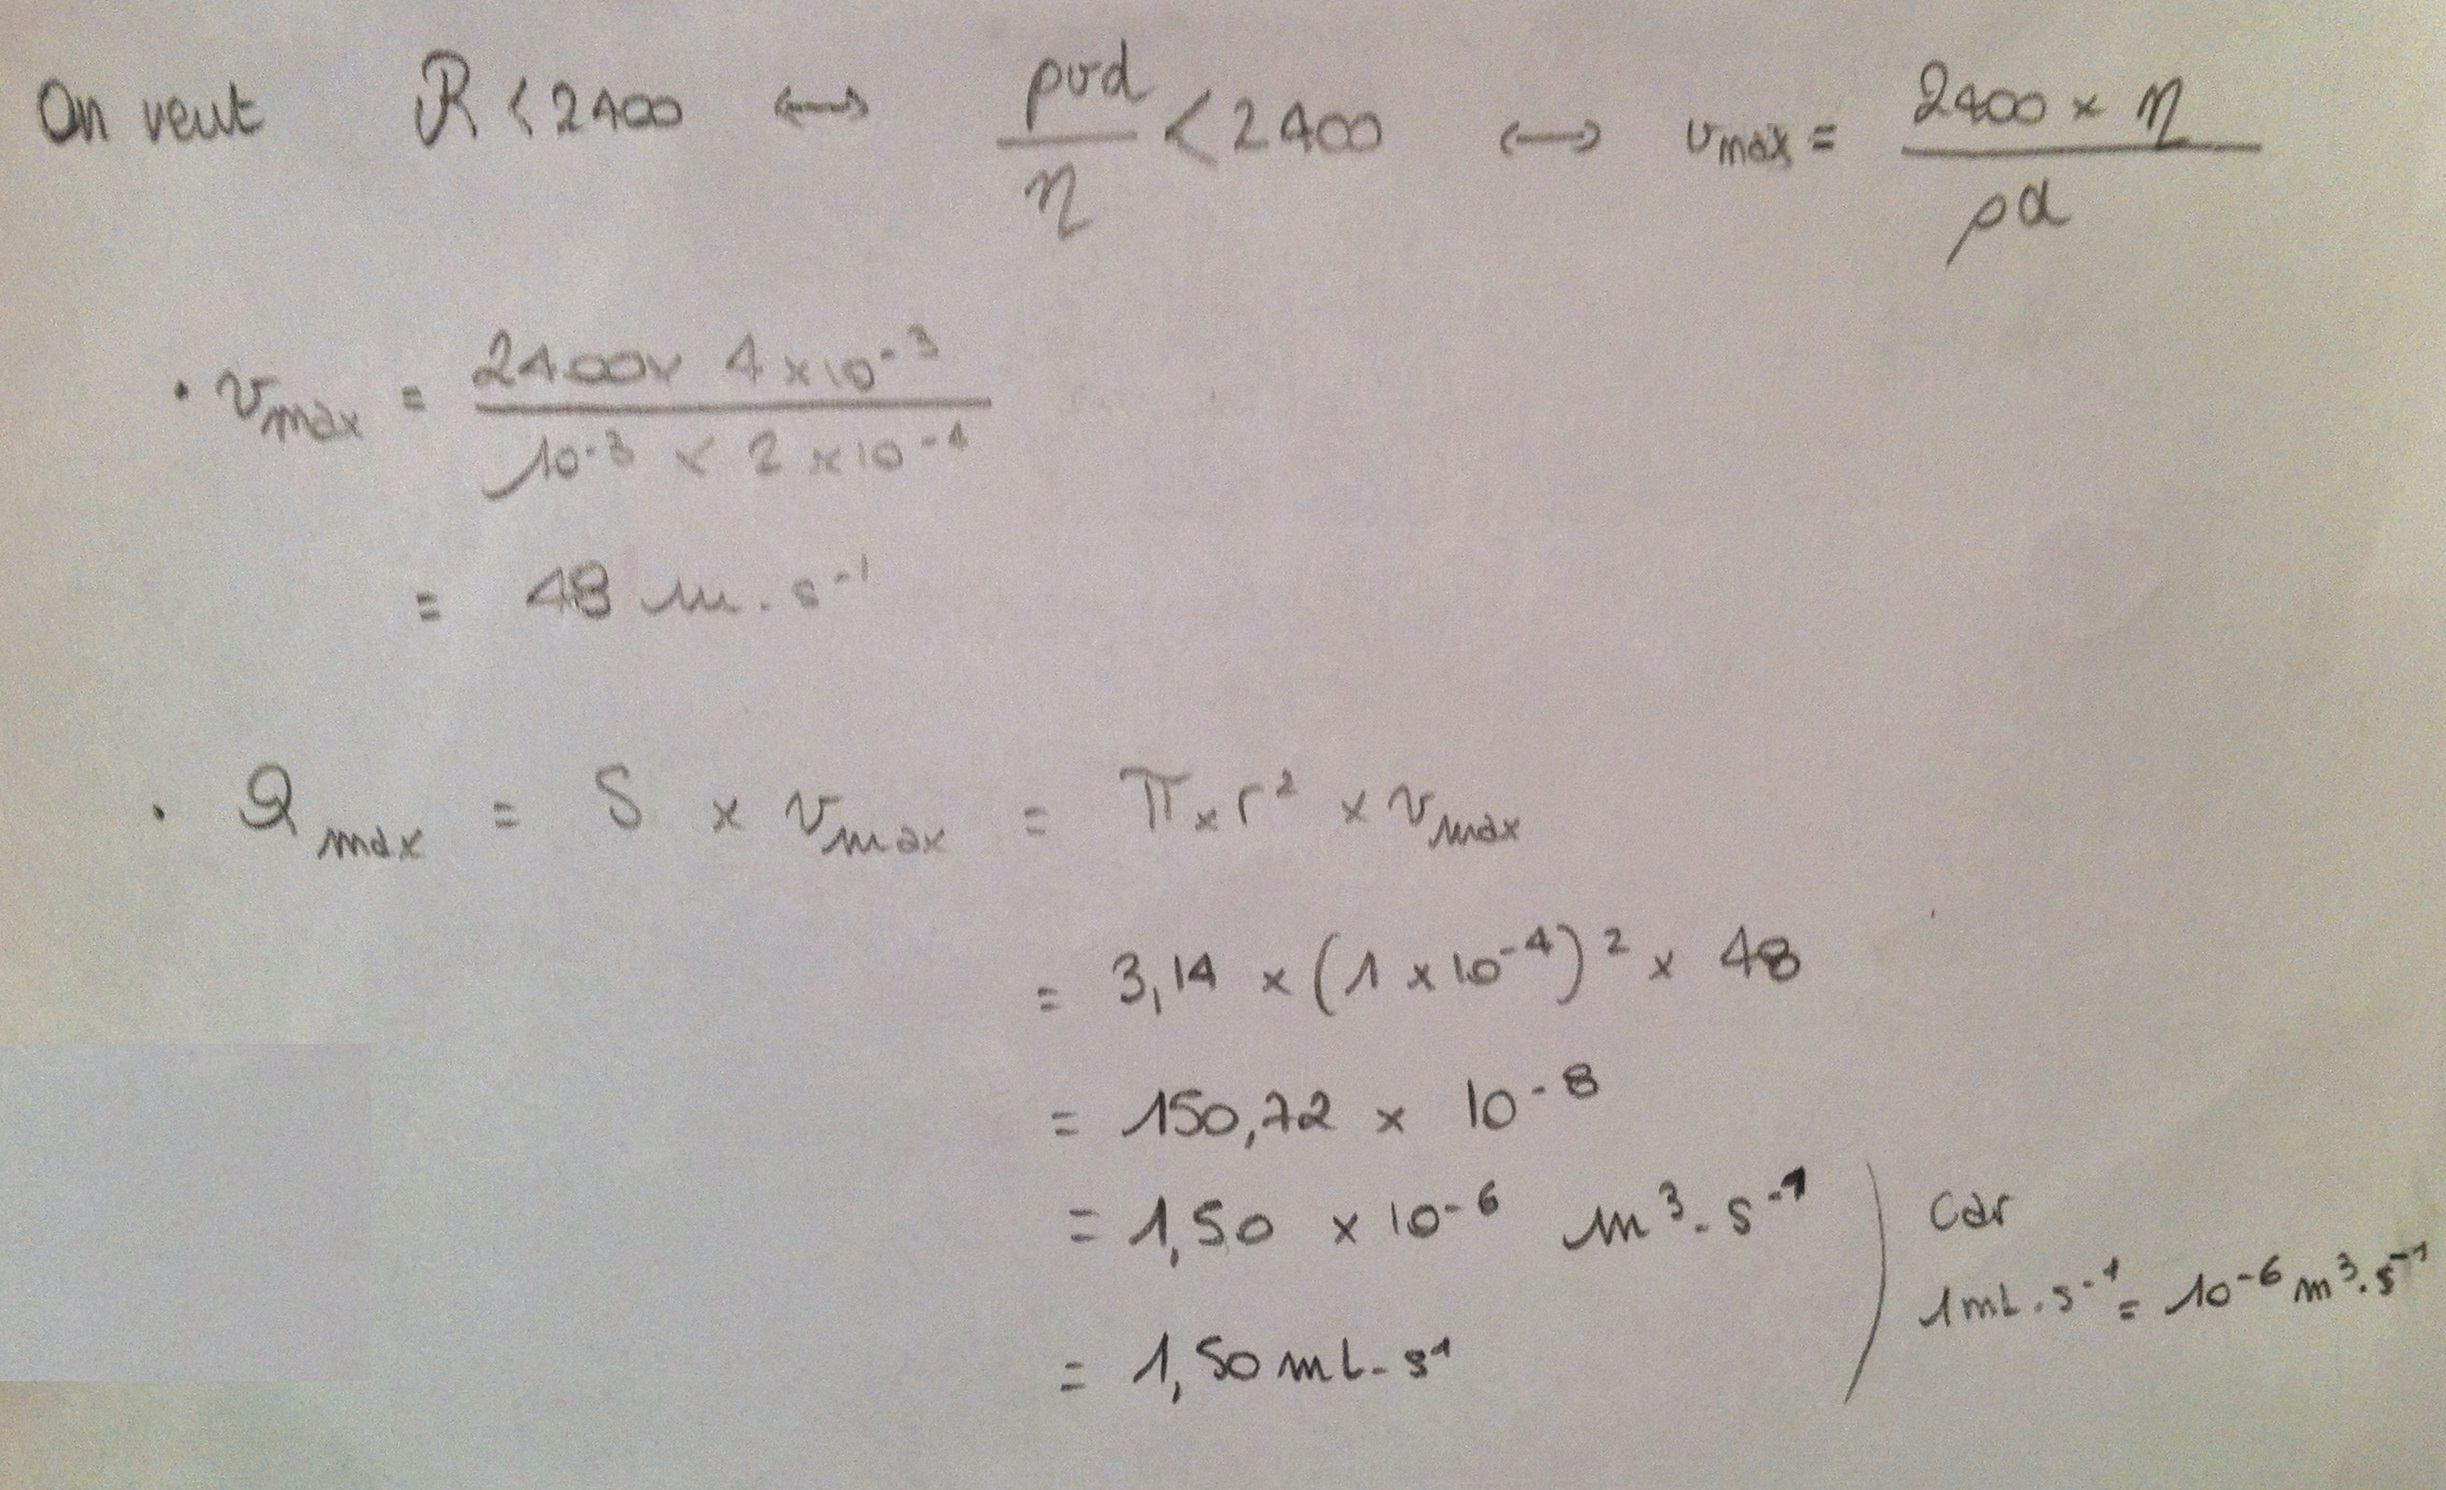 On veut R < 2400 ⟷ ρvd/η < 2400 ⟷ vmax = 2400 × η / ρd
• vmax = 2400 × 4 × 10⁻³ / 10⁻³ × 2 × 10⁻⁴
= 48 m.s⁻¹
• Qmax = S × vmax = π × r² × vmax
= 3,14 × (1 × 10⁻⁴)² × 48
= 150,72 × 10⁻⁸
= 1,50 × 10⁻⁶ m³.s⁻¹ ) car
1mL.s⁻¹ = 10⁻⁶ m³.s⁻¹
= 1,50 mL.s¹